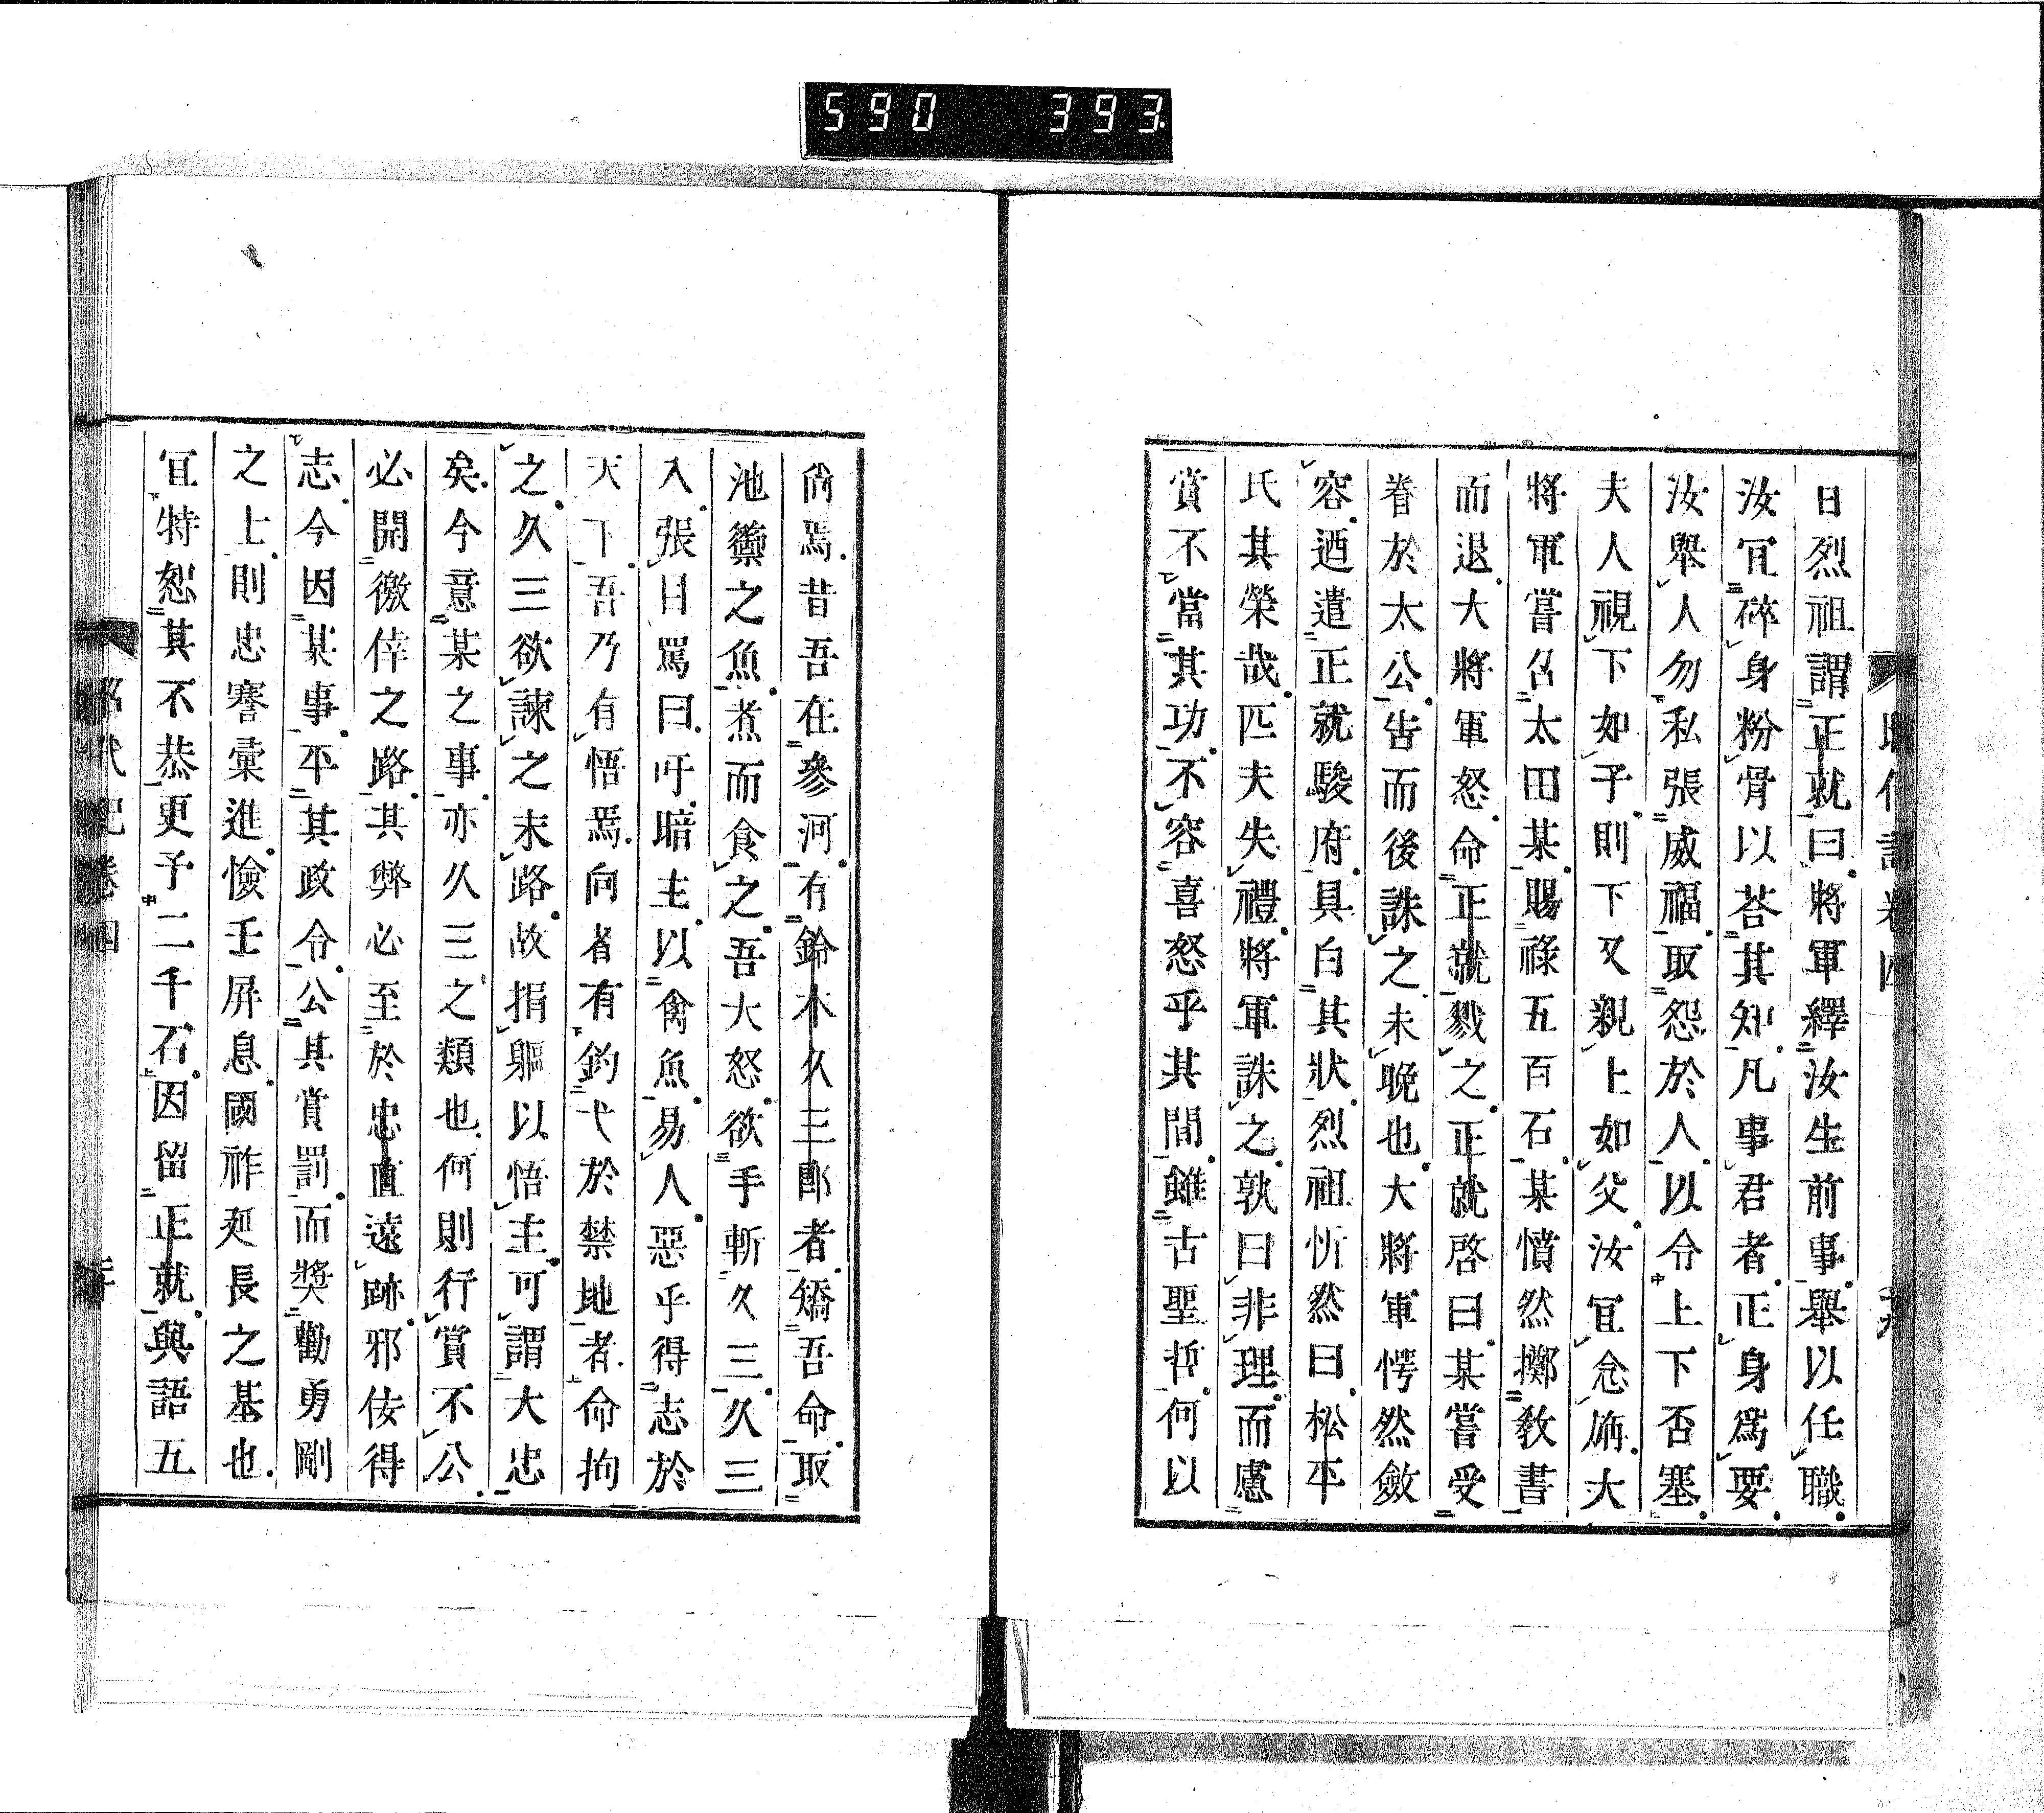 590 393
日烈祖謂正就曰將軍繹汝生前事舉以任職
汝冝碎身粉骨以荅其知凡事君者正身爲要
汝舉人勿私張威福取怨於人以令上下否塞
夫人視下如子則下又親上如父汝冝念旃大
將軍嘗召太田某賜祿五百石某憤然擲教書
而退大將軍怒命正就戮之正就啓曰某嘗受
眷於太公告而後誅之未晚也大將軍愕然斂
容迺遣正就駿府具白其狀烈祖忻然曰松平
氏其榮哉匹夫失禮將軍誅之孰曰非理而慮
賞不當其功不容喜怒乎其間雖古聖哲何以
尚焉昔吾在參河有鈴木久三郎者矯吾命取
池籞之魚煮而食之吾大怒欲手斬久三久三
入張目罵曰吁暗主以禽魚易人惡乎得志於
天下吾乃有悟焉向者有釣弋於禁地者命拘
之久三欲諫之末路故捐軀以悟主可謂大忠
矣今意某之事亦久三之類也何則行賞不公
必開徼倖之路其弊必至於忠直遠跡邪佞得
志今因某事平其政令公其賞罰而奬勸勇剛
之士則忠謇彙進憸壬屏息國祚延長之基也
冝特恕其不恭更予二千石因留正就與語五
昭代記卷四